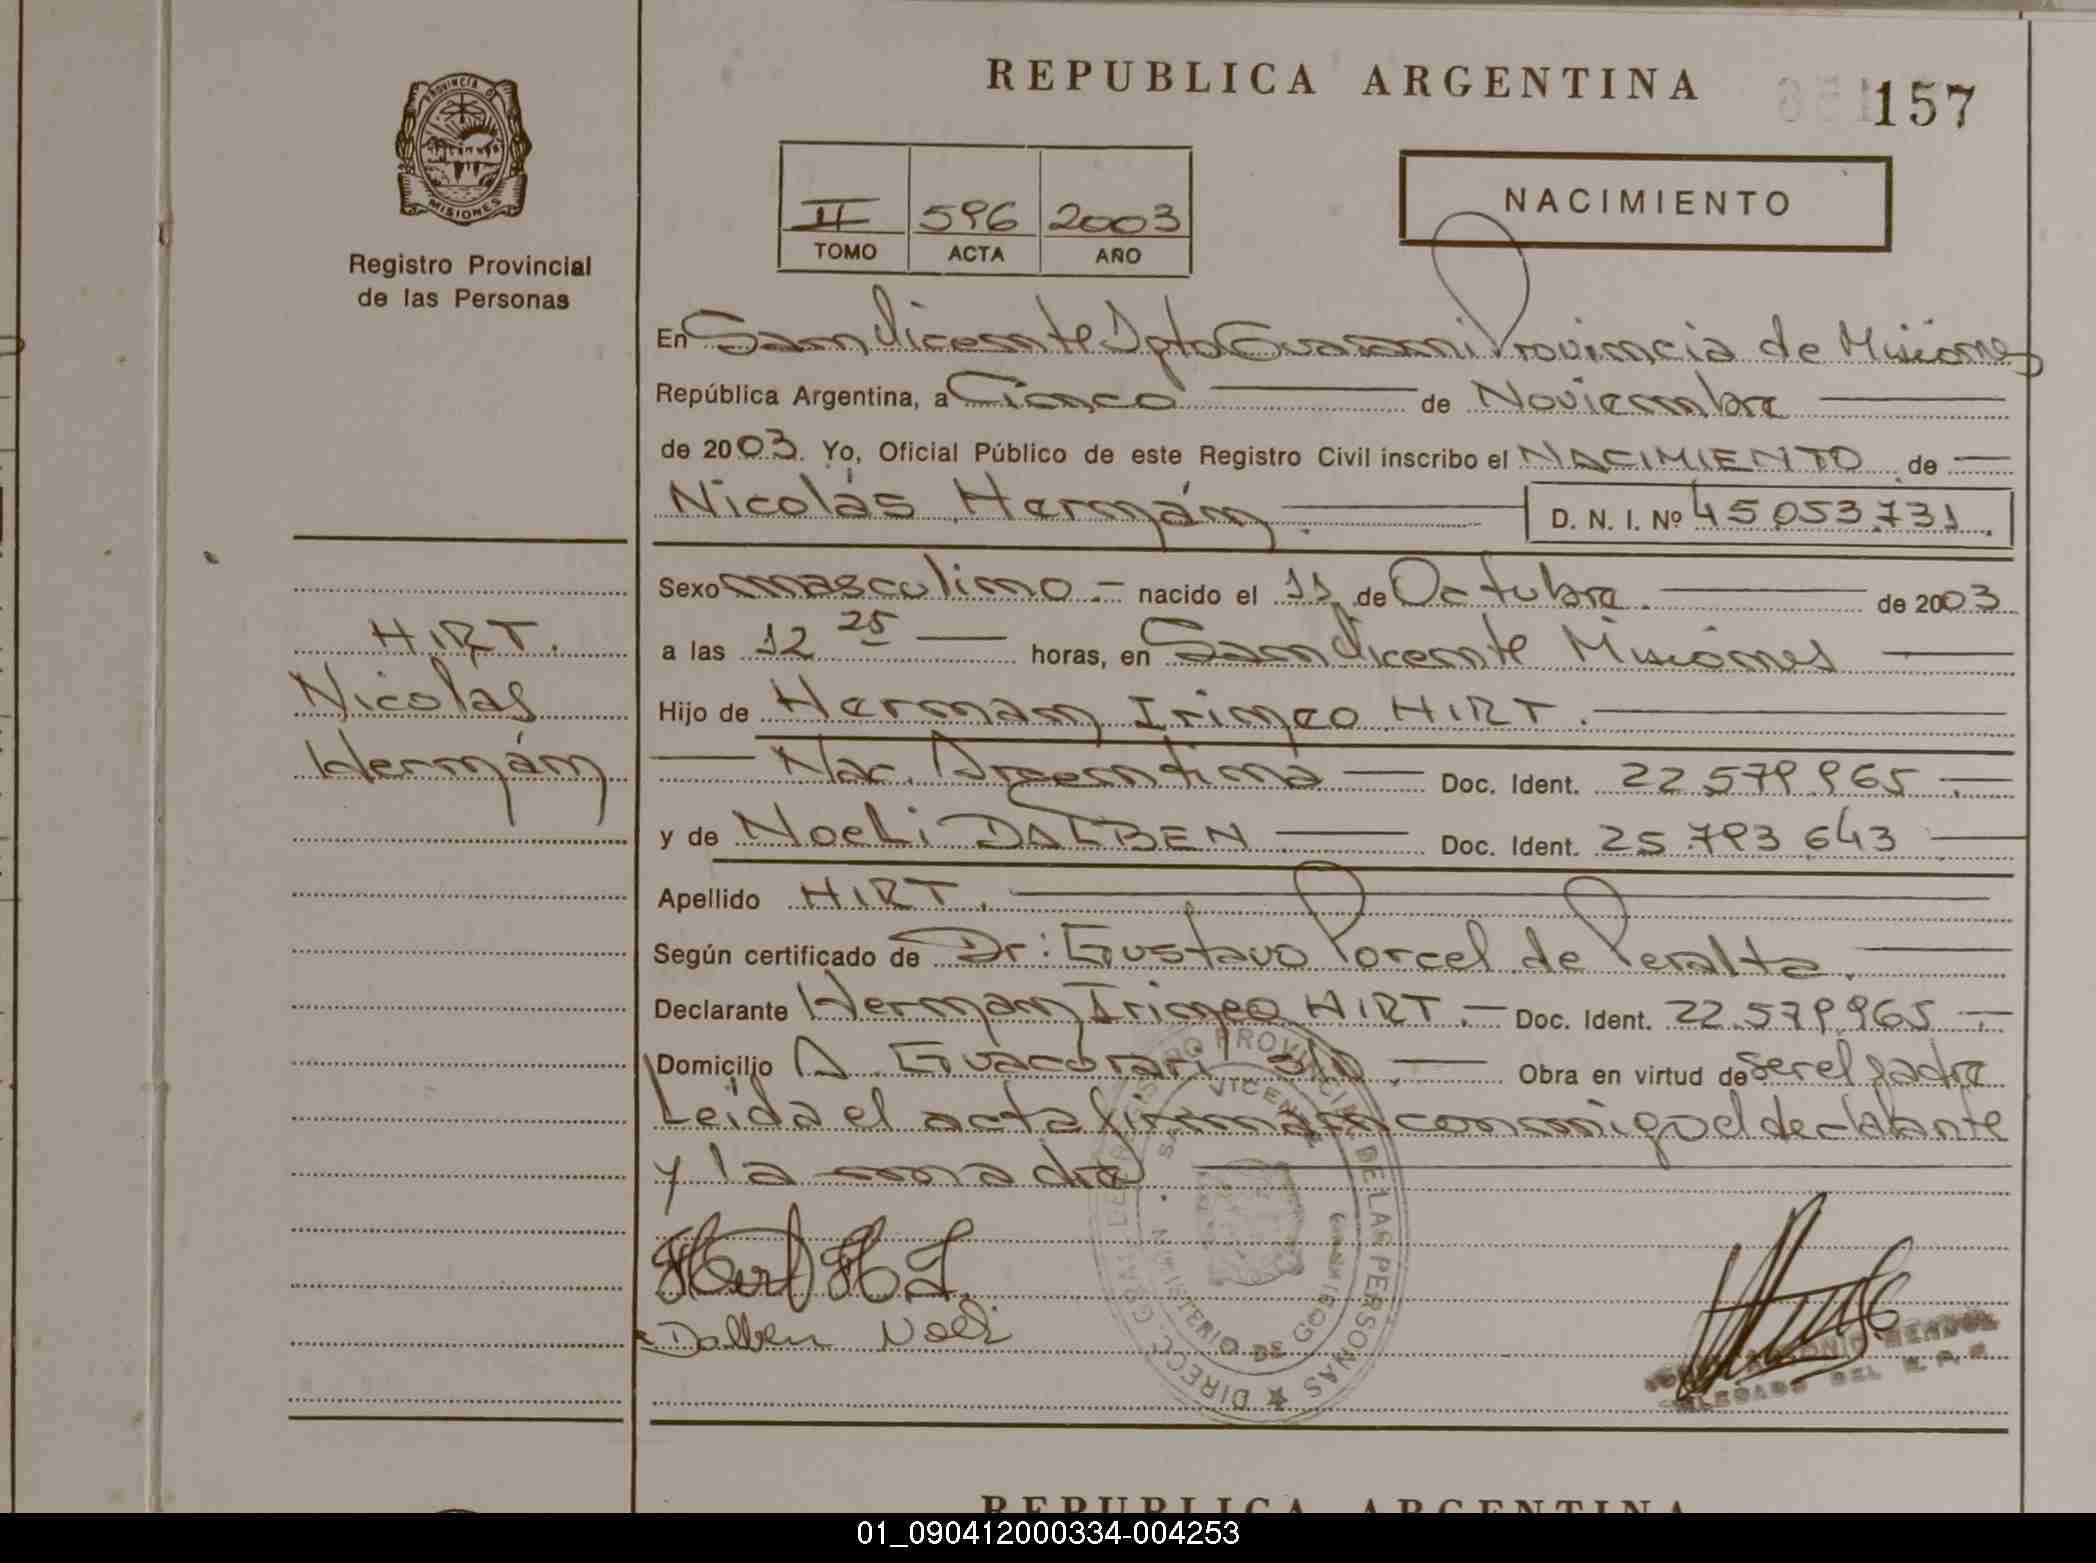 REPUBLICA ARGENTINA
157
PROVINCIA D
MISIONES
Registro Provincial
de las Personas
II 596 2003
TOMO ACTA AÑO
NACIMIENTO
En San Vicente Dpto Guaraní Provincia de Misiones
República Argentina, a Cinco de Noviembre
de 2003. Yo, Oficial Público de este Registro Civil inscribo el NACIMIENTO de
Nicolás Hernán D. N. I. Nº 45053731.
Sexo masculino.- nacido el 11 de Octubre de 2003
a las 12 25 horas, en San Vicente Misiones
HIRT.
Nicolas
Hernán
Hijo de Hernan Irineo HIRT.
Nac. Argentina Doc. Ident. 22.579.965.
y de Noeli DALBEN Doc. Ident. 25.793.643
Apellido HIRT.
Según certificado de Dr: Gustavo Porcel de Peralta.
Declarante Hernan Irineo HIRT.- Doc. Ident. 22.579.965
Domicilio A. Guacurari Obra en virtud de ser el padre
Leida el acta firman conmigo el declarante
y la madre
Dalben Noeli
DIRECC GRAL DEL REGISTRO PROVINCIAL DE LAS PERSONAS
MINISTERIO DE GOBIERNO
SAN VICENTE
ANTONIO
DELEGADO DEL R.P.P.
REPUBLICA ARGENTINA
01_090412000334-004253